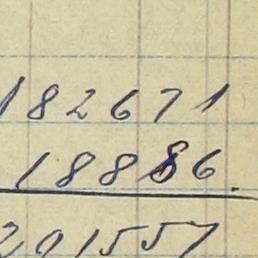 182671
18886.
201557